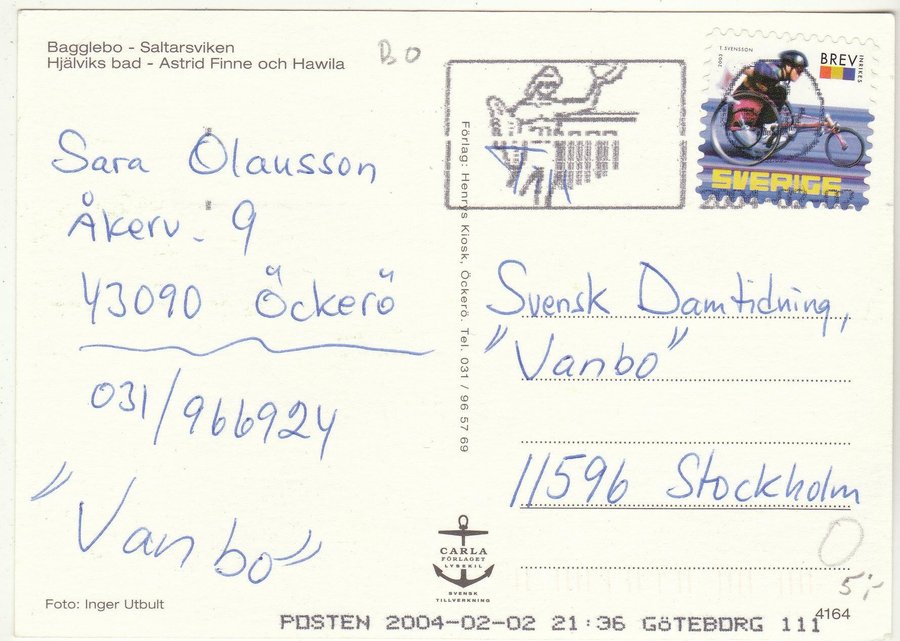 Bagglebo - Saltarsviken
Hjälviks bad - Astrid Finne och Hawila
BO
Sara Olausson
Åkerv. 9
43090 Öckerö
031/966924
"Vanbo"
Foto: Inger Utbult
Förlag: Henrys Kiosk, Öckerö. Tel. 031 / 96 57 69
CARLA
FÖRLAGET
LYSEKIL
SVENSK
TILLVERKNING
2003
T. SVENSSON
BREV
INRIKES
SVERIGE
2004-02-02
Svensk Damtidning,
"Vanbo"
11596 Stockholm
5:-
4164
POSTEN 2004-02-02 21:36 GöTEBORG 111